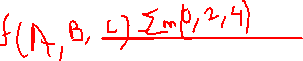 f(A, B, C) Σm(0, 2, 4)